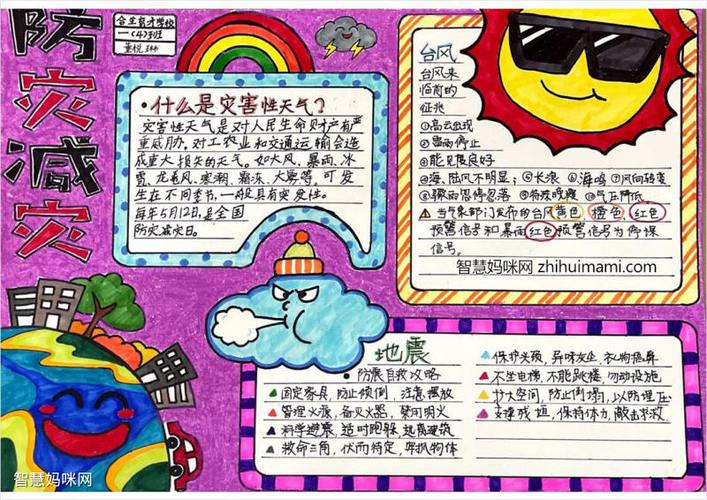 防灾减灾
合兰育才学校
一(4)班
什么是灾害性天气?
灾害性天气是对人民生命财产有严
重威胁,对工农业和交通运输会造
成重大损失的天气。如大风、暴雨、冰
雹、龙卷风、寒潮、霜冻、大雾等。可发
生在不同季节,一般具有突发性。
每年5月12日是全国
防灾减灾日。
台风
台风来
临前的
征兆
①高云出现
②雷雨停止
③能见度良好
④海、陆风不明显;⑤长浪 ⑥海鸣 ⑦风向转变
⑧骤雨忽停忽落 ⑨特殊晚霞 ⑩气压降低
当气象部门发布的台风黄色 橙色 红色
预警信号和暴雨红色预警信号为停课
信号。
智慧妈咪网 zhihuimami.com
地震
防震自救攻略
固定家具,防止倾倒,注意摆放
管理火源,备灭火器,禁用明火
科学避震,适时跑躲,远离建筑
救命三角,伏而待定,牢抓物体
保护头颈,异味灰尘,衣物捂鼻
不坐电梯,不能跳楼,勿动设施
扩大空间,防止倒塌,以防埋压
支撑残垣,保持体力,敲击求救
智慧妈咪网